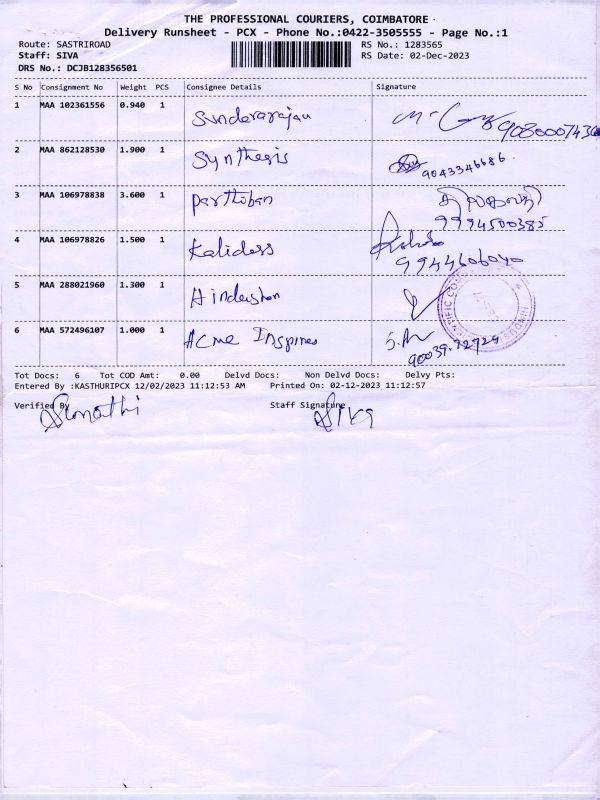 THE PROFESSIONAL COURIERS, COIMBATORE
Delivery Runsheet - PCX - Phone No.:0422-3505555 - Page No.:1
Route: SASTRIROAD RS No.: 1283565
Staff: SIVA RS Date: 02-Dec-2023
DRS No.: DCJB128356501
S No Consignment No Weight PCS Consignee Details Signature
1 MAA 102361556 0.940 1 Sundararajan
2 MAA 862128530 1.900 1 Synthesis 9043346686
3 MAA 106978838 3.600 1 Parthiban 9994500385
4 MAA 106978826 1.500 1 Kalidoss 9944606040
5 MAA 288021960 1.300 1 Hindustan
6 MAA 572496107 1.000 1 Acme Inspires
Tot Docs: 6 Tot COD Amt: 0.00 Delvd Docs: Non Delvd Docs: Delvy Pts:
Entered By :KASTHURIPCX 12/02/2023 11:12:53 AM Printed On: 02-12-2023 11:12:57
Verified By Staff Signature